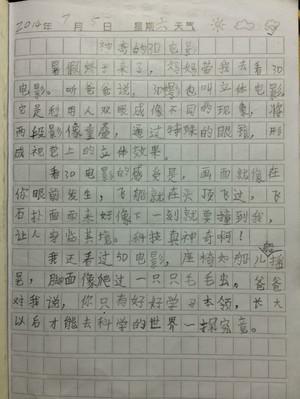 2014年7月5日 星期六天气
神奇的3D电影
暑假终于来了，妈妈带我去看3D
电影。听爸爸说，3D电影也叫立体电影，
它是利用人双眼成像不同的现象，将
两段影像重叠，通过特殊的眼镜，形
成视觉上的立体效果。
看3D电影的感觉是，画面就像在
你眼前发生，飞船就在头顶飞过，飞
石扑面而来好像下一刻就要撞到我，
让人身临其境。科技真神奇啊！
我还看过5D电影，座椅如婴儿摇
晃，脚面像爬过一只只毛毛虫。爸爸
对我说，你只有好好学习本领，长大
以后才能去科学的世界一探究竟。